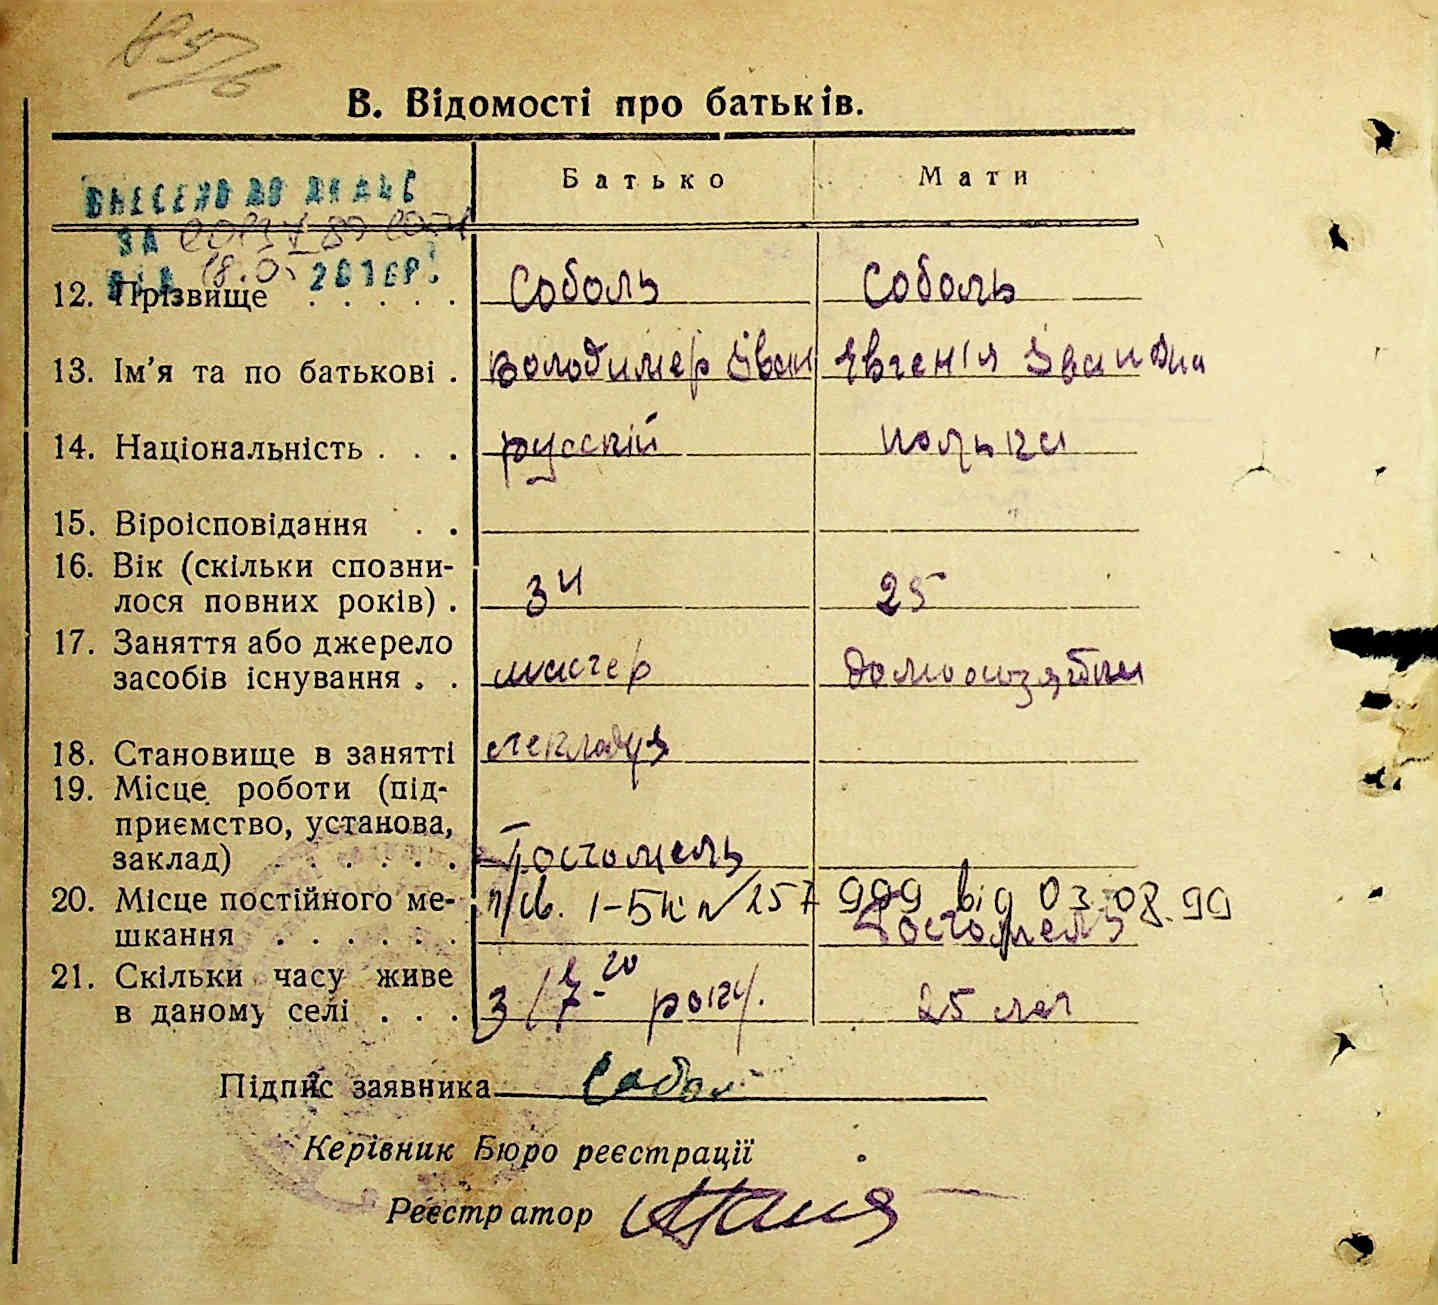 85/6
В. Відомості про батьків.
Батько Мати
ВНЕСЕНО ДО ДРАЦС
ЗА
ВІД 18.0 2016Р.
12. Прізвище . . . . . Соболь Соболь
13. Ім'я та по батькові . Володимер Іван Євгенія Івановна
14. Національність . . . русскій полька
15. Віроісповідання . .
16. Вік (скільки спозни- 34 25
лося повних років) .
17. Заняття або джерело
засобів існування . . мастер домохозяйка
18. Становище в занятті
19. Місце роботи (під-
приємство, установа,
заклад) . . . . . . Гостомель
20. Місце постійного ме- п/св. 1-БК № 257999 від 03.08.99
шкання . . . . . . Гостомель
21. Скільки часу живе
в даному селі . . . З 17-20 року. 25 лет
Підпис заявника Собол
Керівник Бюро реєстрації
Реєстратор